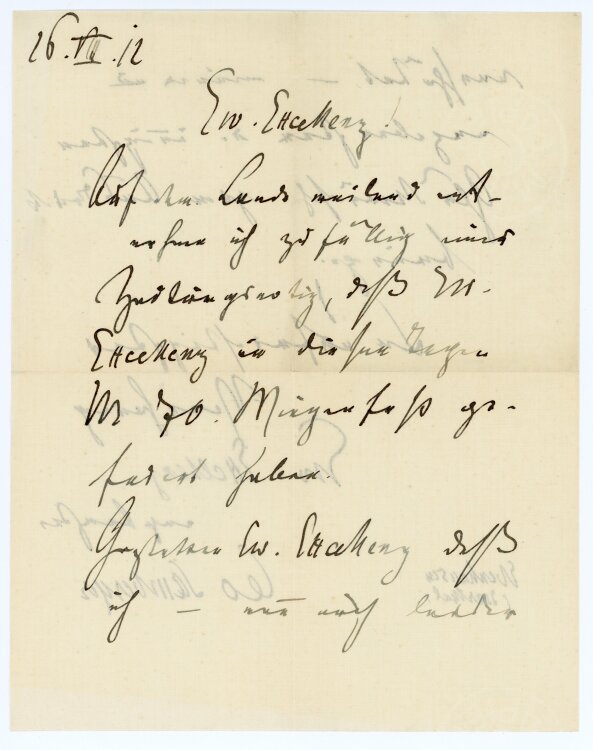 26.VII.12
Ew. Excellenz!
Auf dem Lande weilend ent-
nehme ich zufällig einer
Zeitungsnotiz, daß Ew.
Excellenz in diesen Tagen
Ihr 70. Wiegenfest ge-
feiert haben.
Gestatten Ew. Excellenz daß
ich — wenn auch leider